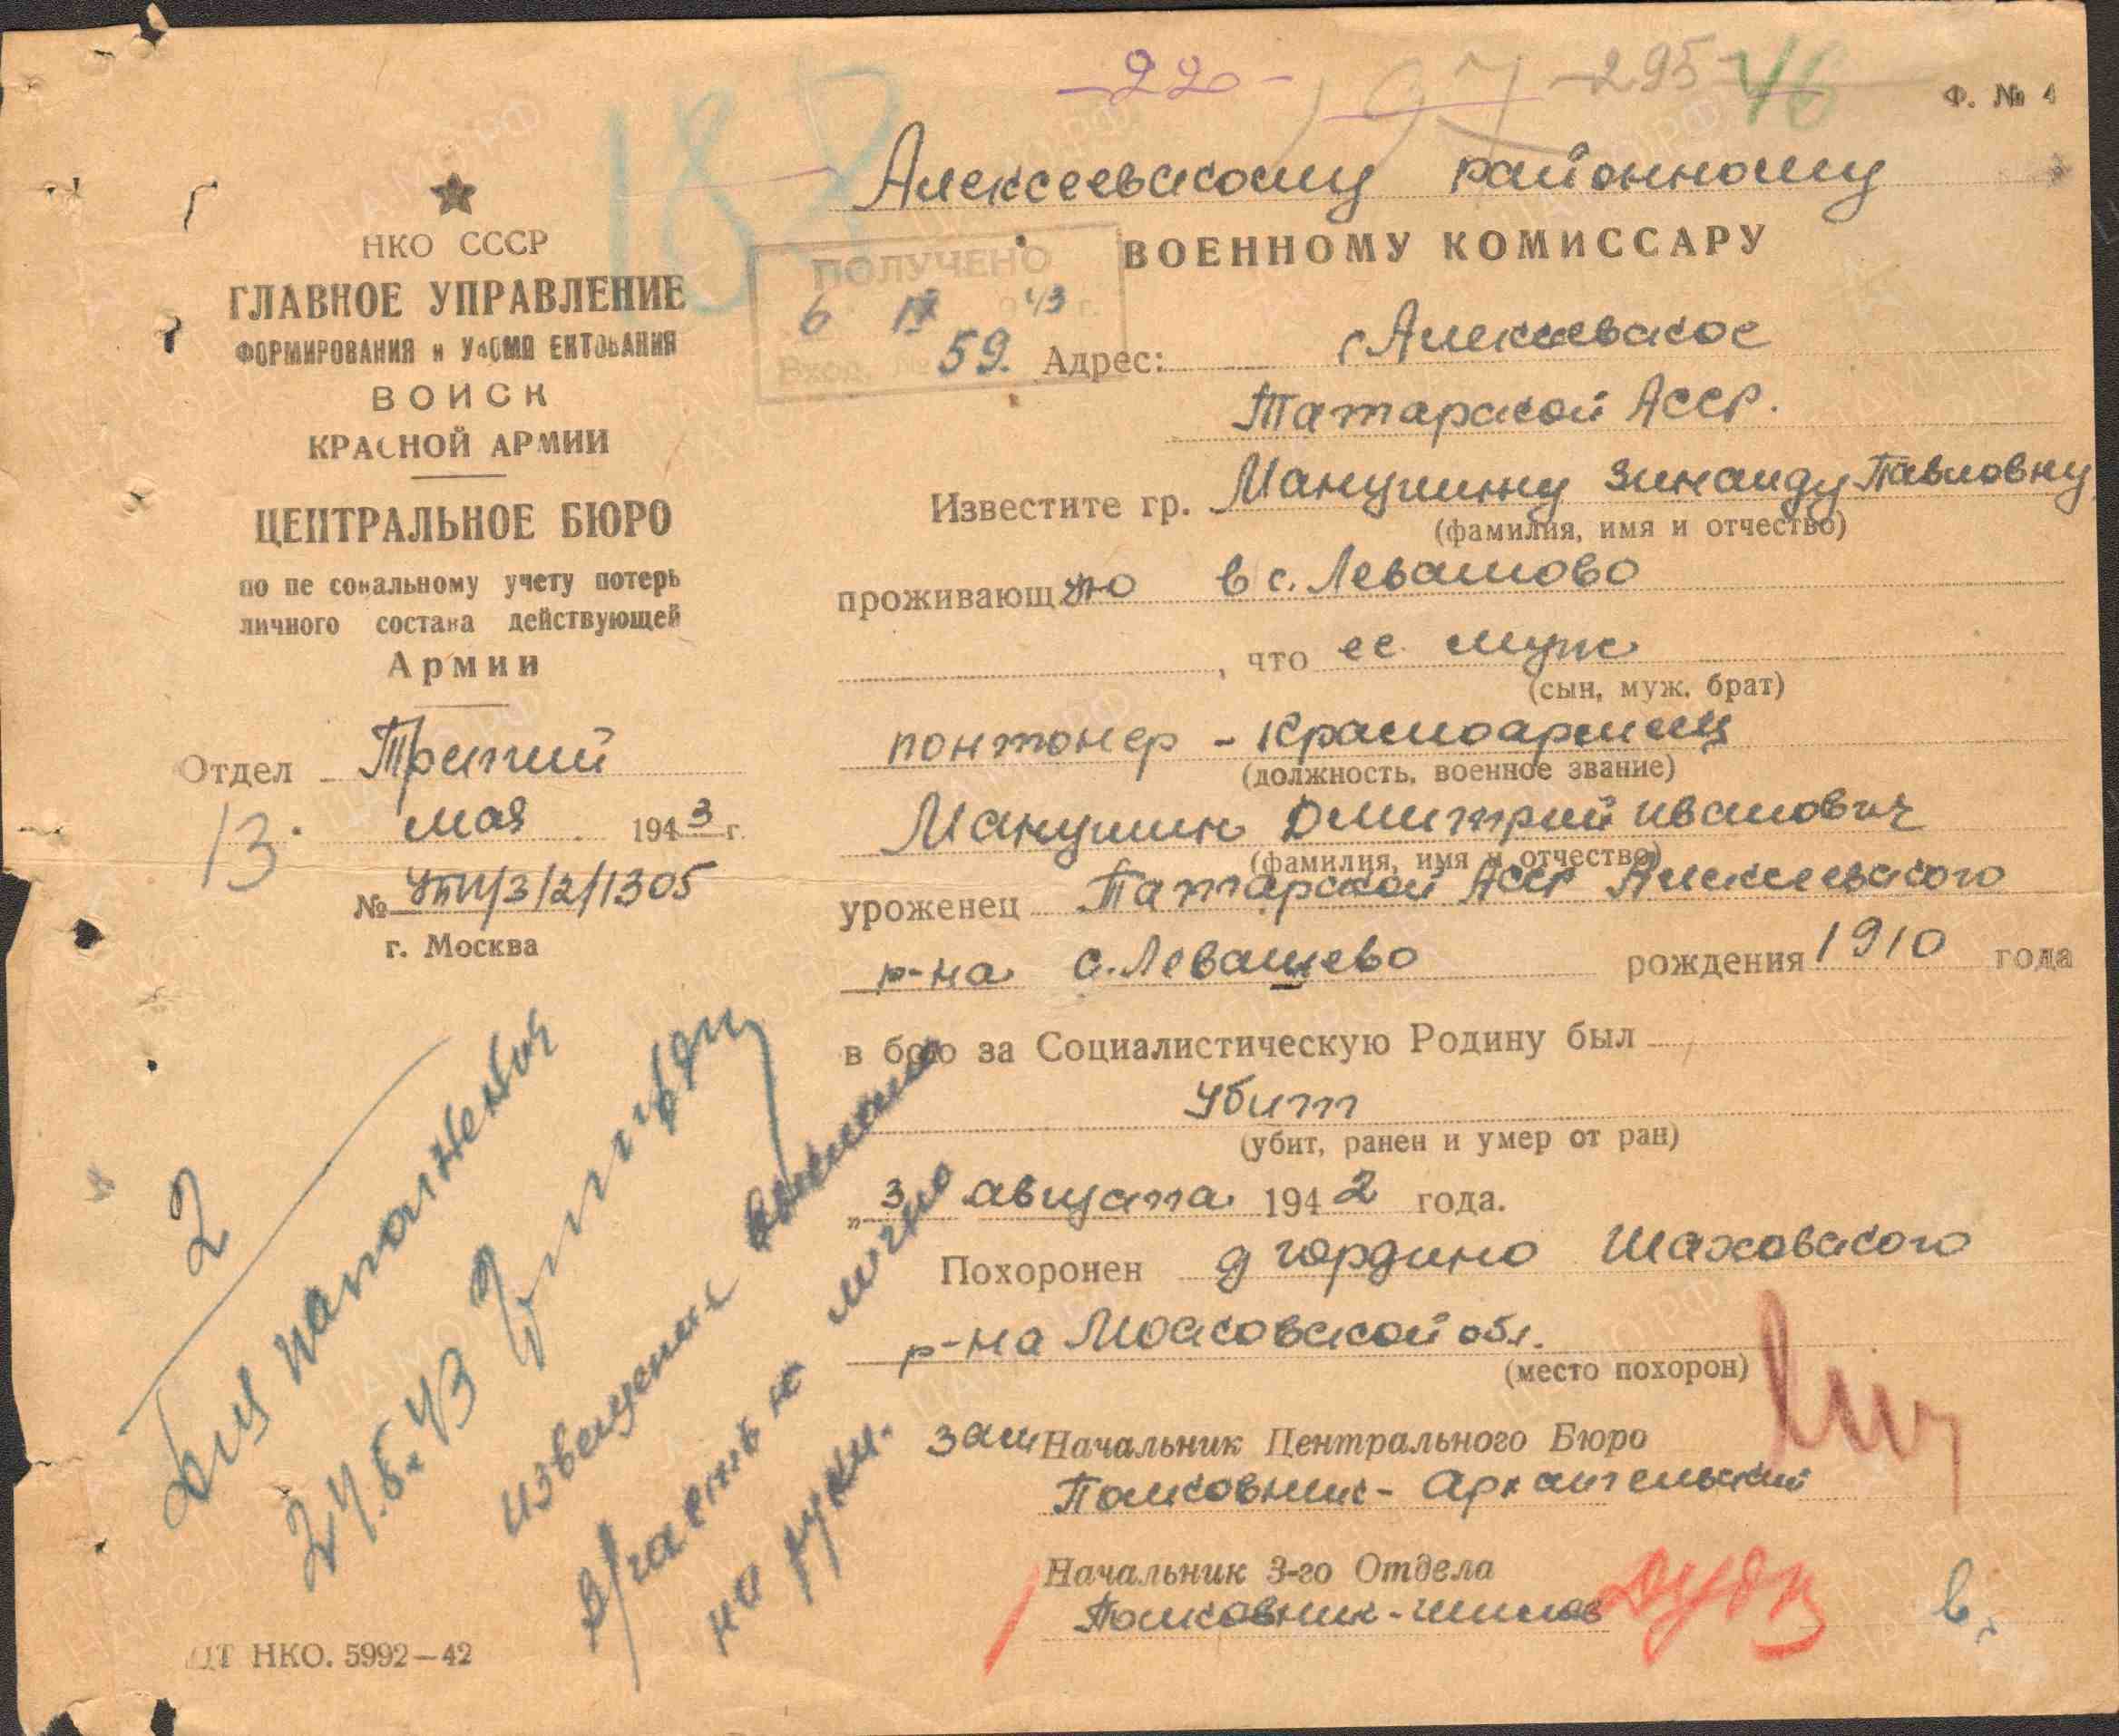 -220- 197 -295- 46
Ф. № 4
187
Алексеевскому районному
ВОЕННОМУ КОМИССАРУ
НКО СССР
ГЛАВНОЕ УПРАВЛЕНИЕ
ФОРМИРОВАНИЯ и УКОМПЛЕКТОВАНИЯ
ВОЙСК
КРАСНОЙ АРМИИ
ЦЕНТРАЛЬНОЕ БЮРО
по персональному учету потерь
личного состава действующей
Армии
Отдел Третий
13. мая 1943 г.
№ УПП/3/2/1305
г. Москва
ПОЛУЧЕНО
6 IX 43 г.
Вход. № 59.
Адрес: с Алексеевское
Татарской АССР.
Известите гр. Манушину Зинаиду Павловну
(фамилия, имя и отчество)
проживающую в с. Левашово
, что ее муж
(сын, муж, брат)
понтонер - красноармеец
(должность, военное звание)
Манушин Дмитрий Иванович
(фамилия, имя и отчество)
уроженец Татарской АССР Алексеевского
р-на с. Левашево рождения 1910 года
в бою за Социалистическую Родину был
убит
(убит, ранен и умер от ран)
„3 августа 1942 года.
Похоронен д Гордино Шаховского
р-на Московской обл.
(место похорон)
зам Начальник Центрального Бюро
Полковник - Архангельский
Начальник 3-го Отдела
Полковник - Шилов
2
24.5.43
извещение
лично
на руки.
в.
ЦТ НКО. 5992—42